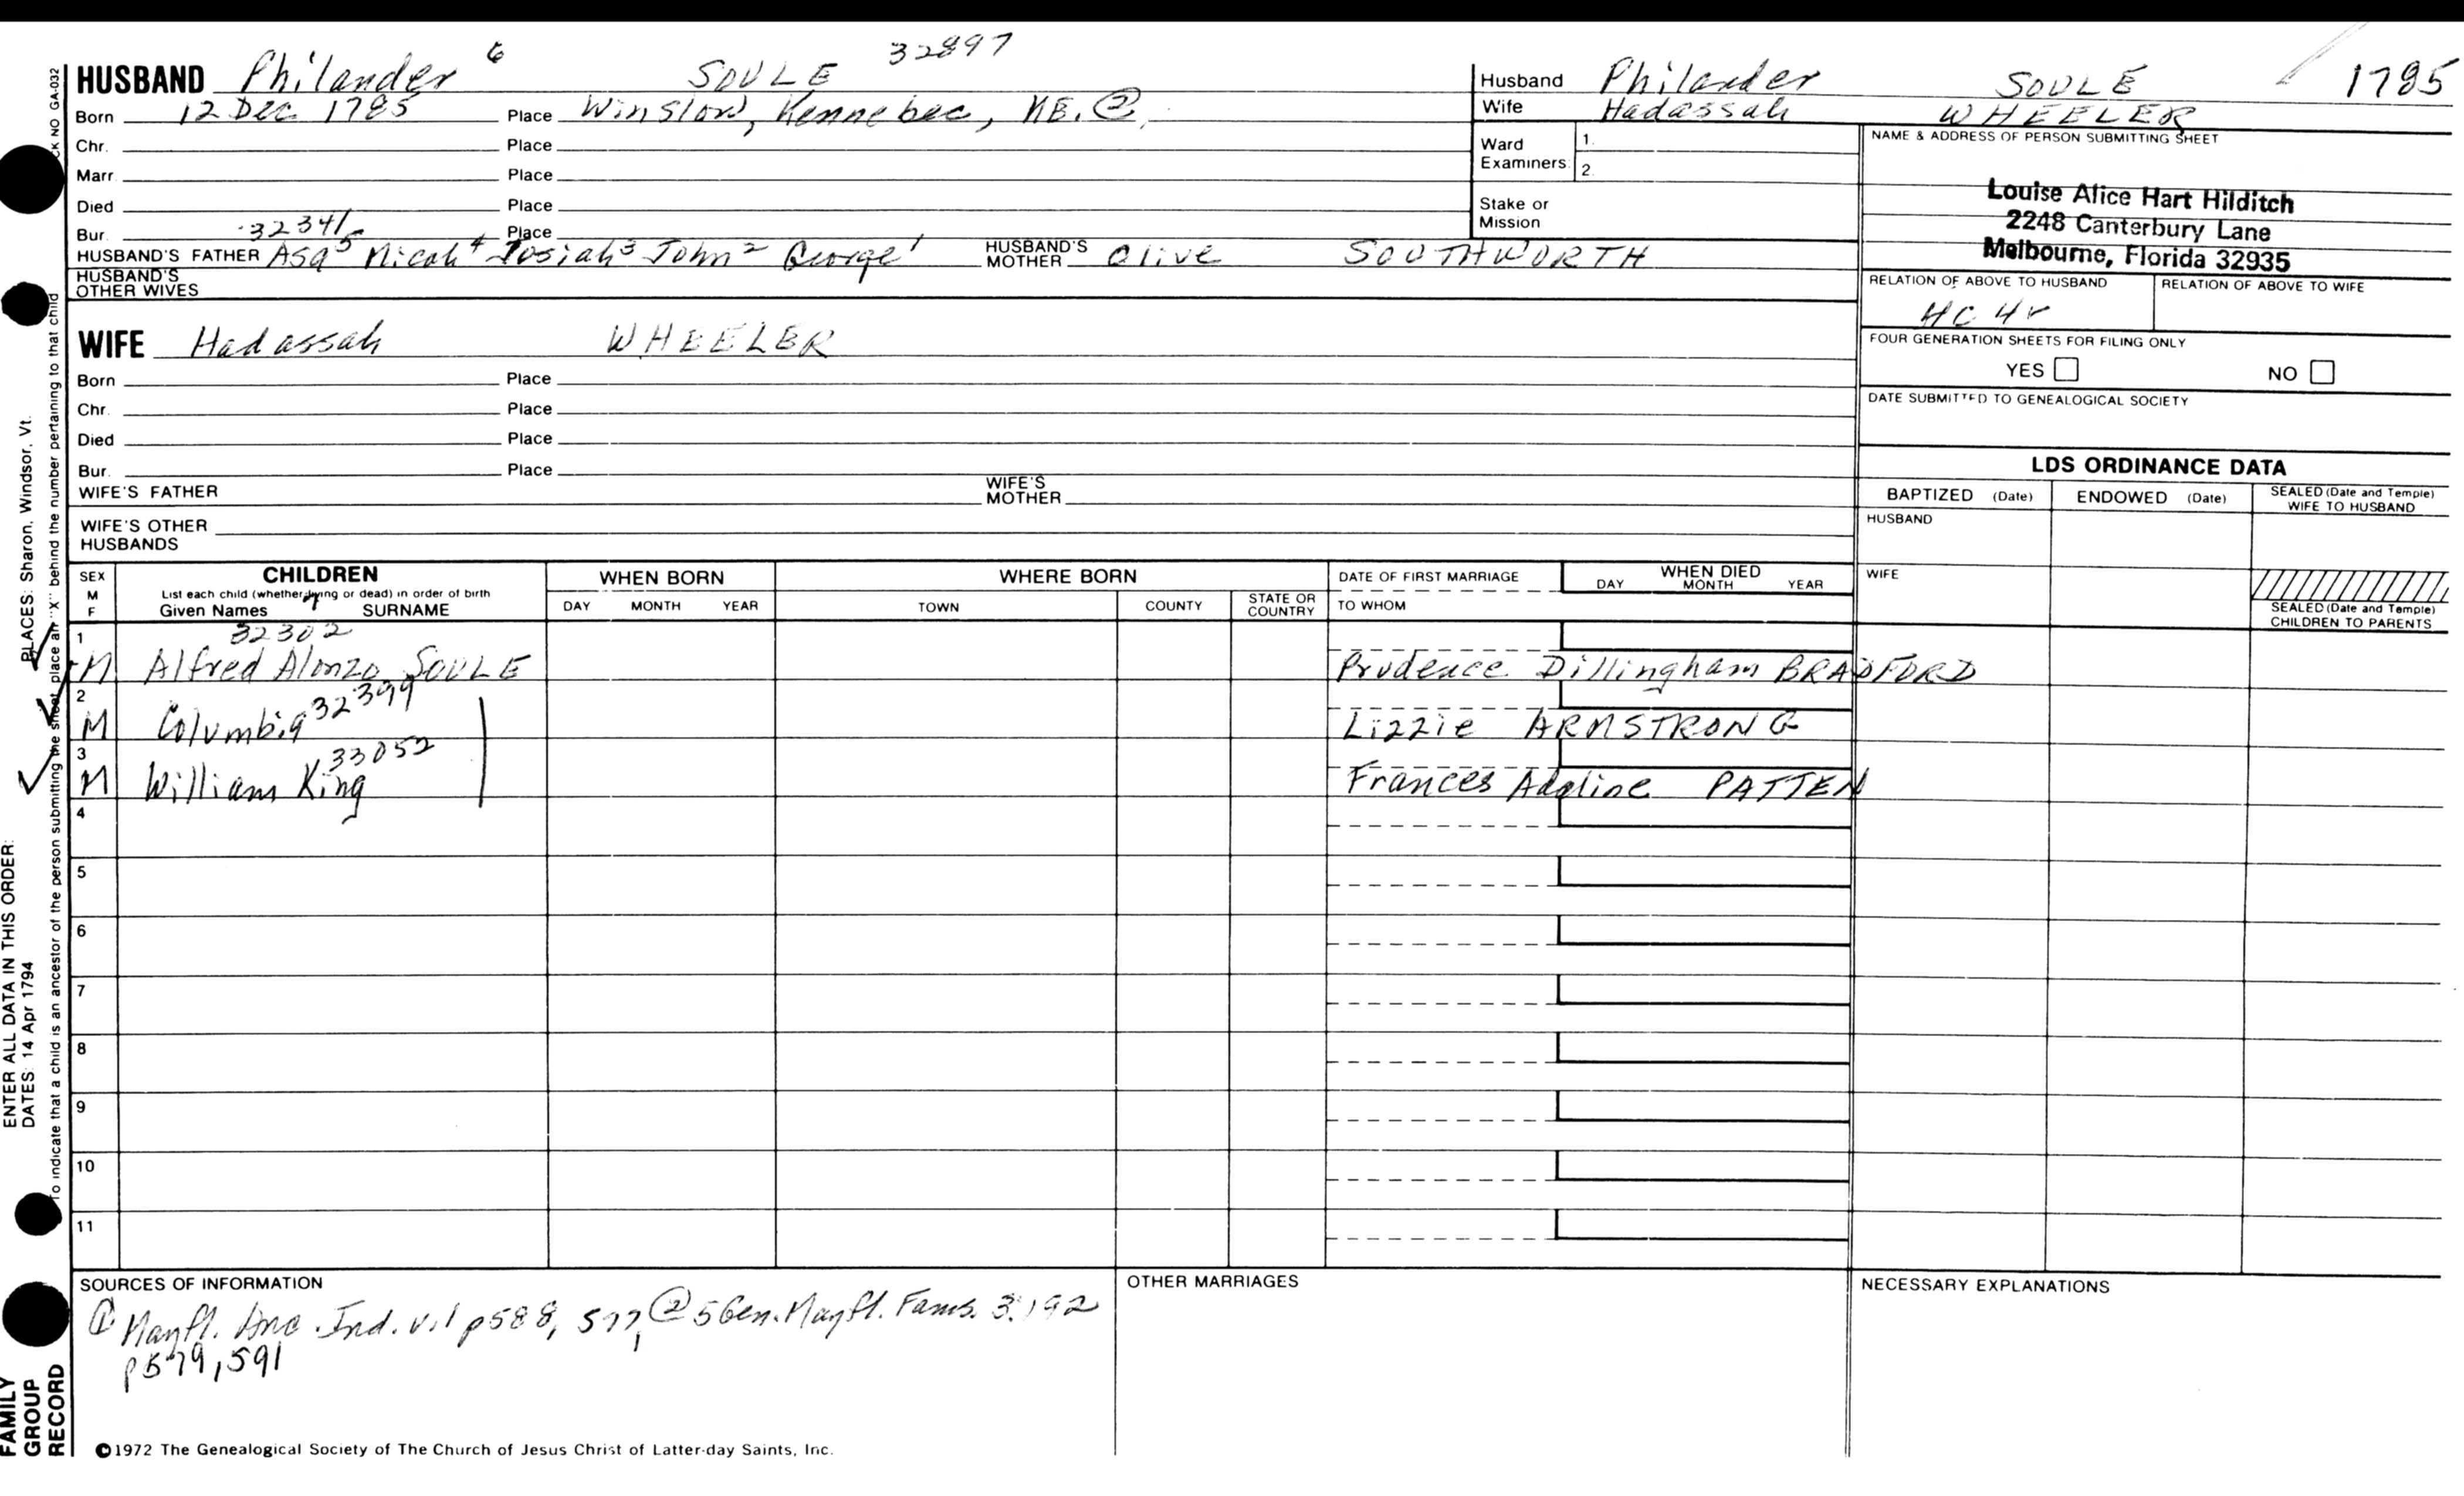 32897
HUSBAND Philander 6 SOULE
Born 12 Dec. 1785 Place Winslow, Kennebec, ME. ②
Chr. Place
Marr. Place
Died Place
Bur. Place
32341
HUSBAND'S FATHER Asa5 Micah4 Josiah3 John2 George1 HUSBAND'S MOTHER Olive SOUTHWORTH
HUSBAND'S OTHER WIVES
WIFE Hadassah WHEELER
Born Place
Chr. Place
Died Place
Bur. Place
WIFE'S FATHER WIFE'S MOTHER
WIFE'S OTHER HUSBANDS
Husband Philander SOULE 1785
Wife Hadassah WHEELER
Ward Examiners: 1. 2.
Stake or Mission
NAME & ADDRESS OF PERSON SUBMITTING SHEET
Louise Alice Hart Hilditch
2248 Canterbury Lane
Melbourne, Florida 32935
RELATION OF ABOVE TO HUSBAND RELATION OF ABOVE TO WIFE
HC 4r
FOUR GENERATION SHEETS FOR FILING ONLY
YES NO
DATE SUBMITTED TO GENEALOGICAL SOCIETY
LDS ORDINANCE DATA
BAPTIZED (Date) ENDOWED (Date) SEALED (Date and Temple) WIFE TO HUSBAND
HUSBAND
WIFE
SEALED (Date and Temple) CHILDREN TO PARENTS
SEX M F
CHILDREN
List each child (whether living or dead) in order of birth
Given Names 7 SURNAME
WHEN BORN
DAY MONTH YEAR
WHERE BORN
TOWN COUNTY STATE OR COUNTRY
DATE OF FIRST MARRIAGE
TO WHOM
WHEN DIED
DAY MONTH YEAR
1 32302
M Alfred Alonzo SOULE Prudence Dillingham BRADFORD
2 32399
M Columbia Lizzie ARMSTRONG
3 33052
M William King Frances Adaline PATTEN
4
5
6
7
8
9
10
11
SOURCES OF INFORMATION
① Mayfl. Anc. Ind. v.1 p588, 577, ② 5 Gen. Mayfl. Fams. 3:192
p579, 591
OTHER MARRIAGES
NECESSARY EXPLANATIONS
©1972 The Genealogical Society of The Church of Jesus Christ of Latter-day Saints, Inc.
FAMILY GROUP RECORD
ENTER ALL DATA IN THIS ORDER:
DATES: 14 Apr 1794 PLACES: Sharon, Windsor, Vt.
To indicate that a child is an ancestor of the person submitting the sheet, place an "X" behind the number pertaining to that child
CK NO GA-032